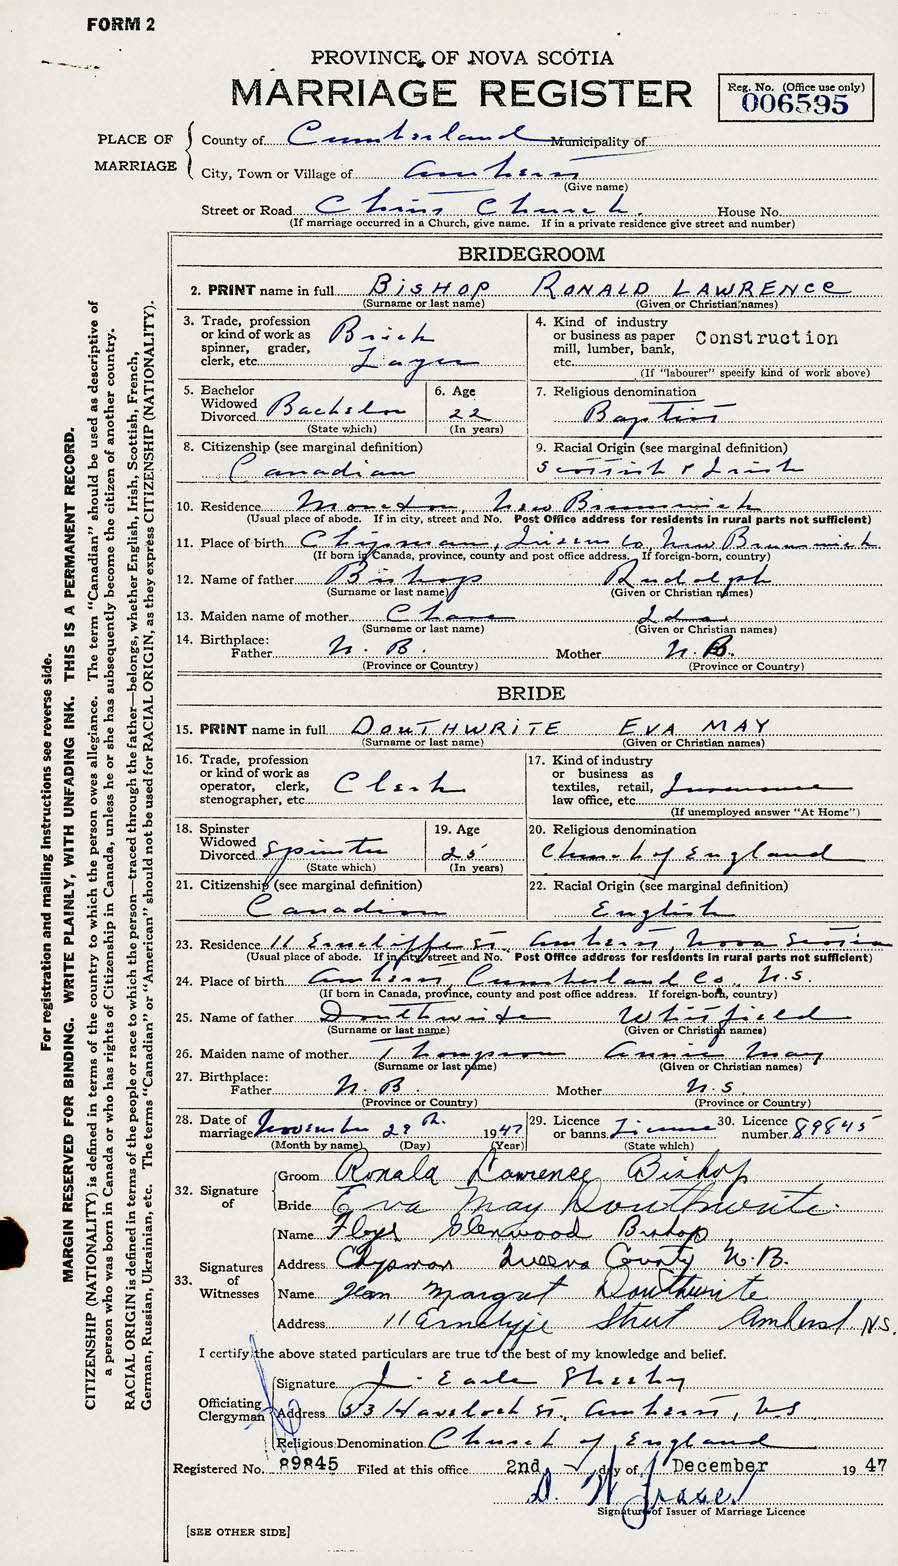 FORM 2
PROVINCE OF NOVA SCOTIA
MARRIAGE REGISTER
Reg. No. (Office use only)
006595
PLACE OF MARRIAGE
County of Cumberland Municipality of
City, Town or Village of Amherst
(Give name)
Street or Road Christ Church. House No.
(If marriage occurred in a Church, give name. If in a private residence give street and number)
BRIDEGROOM
2. PRINT name in full BISHOP RONALD LAWRENCE
(Surname or last name) (Given or Christian names)
3. Trade, profession or kind of work as spinner, grader, clerk, etc. Brick Layer
4. Kind of industry or business as paper mill, lumber, bank, etc. Construction
(If "labourer" specify kind of work above)
5. Bachelor Widowed Divorced Bachelor
(State which)
6. Age 22
(In years)
7. Religious denomination
Baptist
8. Citizenship (see marginal definition)
Canadian
9. Racial Origin (see marginal definition)
Scottish & Irish
10. Residence Moncton, New Brunswick
(Usual place of abode. If in city, street and No. Post Office address for residents in rural parts not sufficient)
11. Place of birth Chipman, Queens Co, New Brunswick.
(If born in Canada, province, county and post office address. If foreign-born, country)
12. Name of father Bishop Rudolph
(Surname or last name) (Given or Christian names)
13. Maiden name of mother Chase Ida
(Surname or last name) (Given or Christian names)
14. Birthplace:
Father N. B. Mother N. B.
(Province or Country) (Province or Country)
BRIDE
15. PRINT name in full DOUTHWRITE EVA MAY
(Surname or last name) (Given or Christian names)
16. Trade, profession or kind of work as operator, clerk, stenographer, etc. Clerk
17. Kind of industry or business as textiles, retail, law office, etc. Insurance
(If unemployed answer "At Home")
18. Spinster Widowed Divorced Spinster
(State which)
19. Age 25
(In years)
20. Religious denomination
Church of England
21. Citizenship (see marginal definition)
Canadian
22. Racial Origin (see marginal definition)
English
23. Residence 11 Erncliffe St. Amherst, Nova Scotia
(Usual place of abode. If in city, street and No. Post Office address for residents in rural parts not sufficient)
24. Place of birth Amherst, Cumberland Co., N.S.
(If born in Canada, province, county and post office address. If foreign-born, country)
25. Name of father Douthwrite Whitfield
(Surname or last name) (Given or Christian names)
26. Maiden name of mother Thompson Annie May
(Surname or last name) (Given or Christian names)
27. Birthplace:
Father N. B. Mother N. S
(Province or Country) (Province or Country)
28. Date of marriage November 29th. 1947
(Month by name) (Day) (Year)
29. Licence or banns License
(State which)
30. Licence number 89845
32. Signature of
Groom Ronald Lawrence Bishop
Bride Eva May Douthwrite.
33. Signatures of Witnesses
Name Floyd Glenwood Bishop
Address Chipman Queens County N.B.
Name Jean Margret Douthwrite
Address 11 Ernclyffe Street Amherst N.S.
I certify the above stated particulars are true to the best of my knowledge and belief.
Officiating Clergyman
Signature J. Earle Sheehy
Address 53 Havelock St. Amherst, N.S
Religious Denomination Church of England
Registered No. 89845 Filed at this office 2nd day of December 1947
D. W. Fraser
Signature of Issuer of Marriage Licence
[SEE OTHER SIDE]
For registration and mailing instructions see reverse side.
MARGIN RESERVED FOR BINDING. WRITE PLAINLY, WITH UNFADING INK. THIS IS A PERMANENT RECORD.
CITIZENSHIP (NATIONALITY) is defined in terms of the country to which the person owes allegiance. The term "Canadian" should be used as descriptive of
a person who was born in Canada or who has rights of Citizenship in Canada, unless he or she has subsequently become the citizen of another country.
RACIAL ORIGIN is defined in terms of the people or race to which the person—traced through the father—belongs, whether English, Irish, Scottish, French,
German, Russian, Ukrainian, etc. The terms "Canadian" or "American" should not be used for RACIAL ORIGIN, as they express CITIZENSHIP (NATIONALITY).